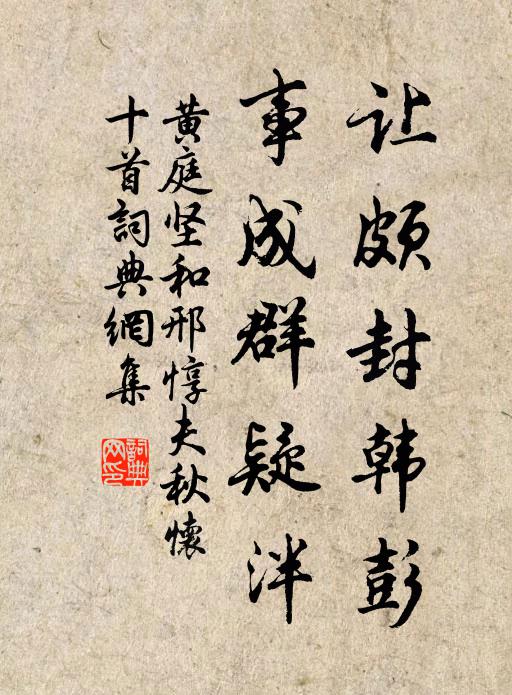 让颇封韩彭
事成群疑泮
黄庭坚和邢惇夫秋怀
十首詞典網集
詞典
网印